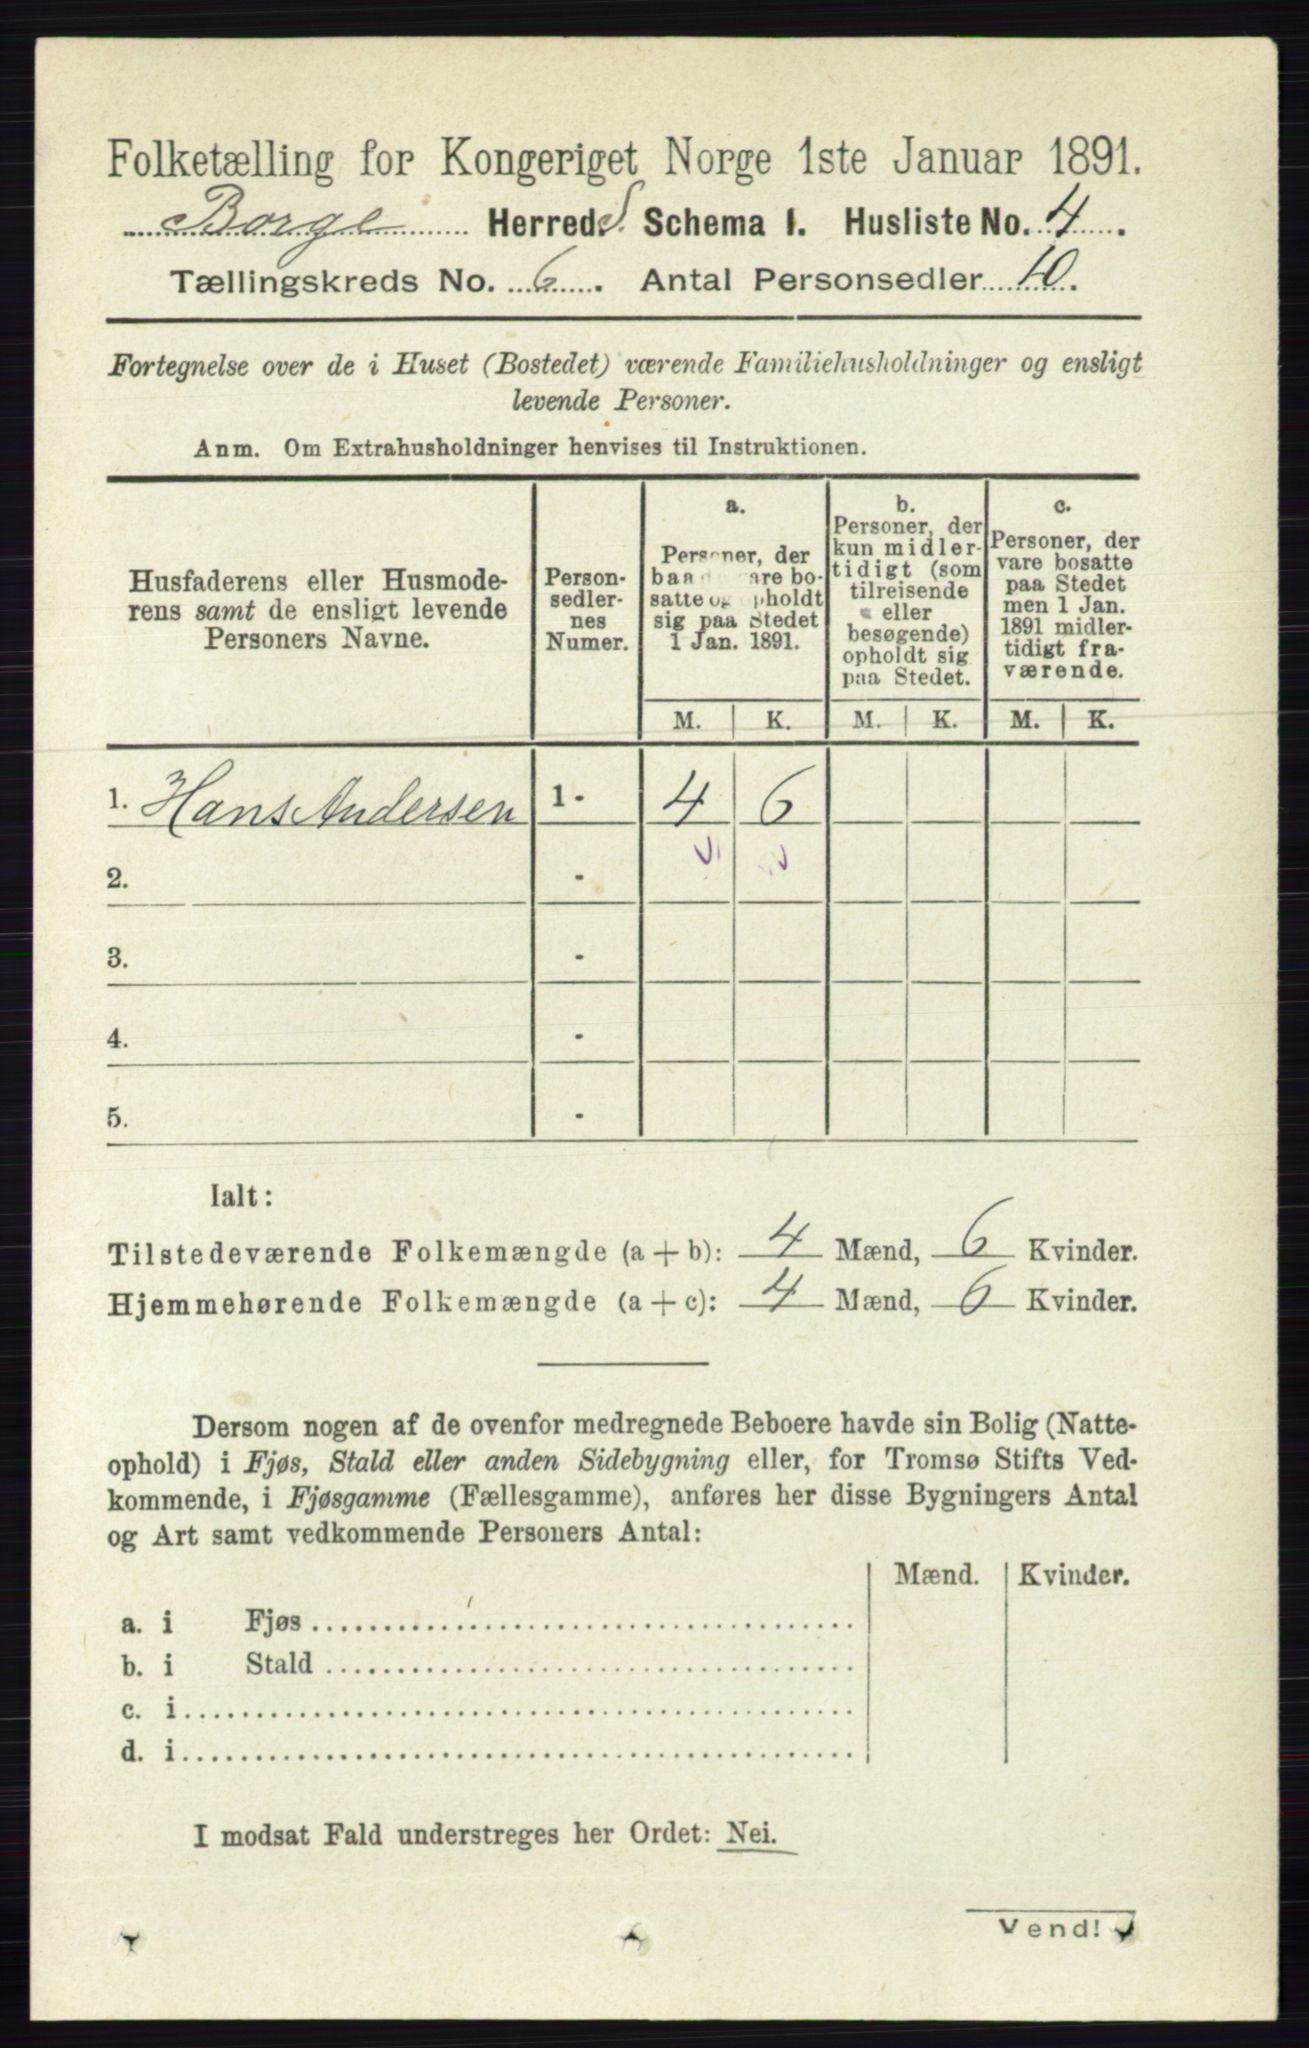 Folketælling for Kongeriget Norge 1ste Januar 1891.
Borge Herred. S. Schema I. Husliste No. 4.
Tællingskreds No. 6. Antal Personsedler 10.
Fortegnelse over de i Huset (Bostedet) værende Familiehusholdninger og ensligt
levende Personer.
Anm. Om Extrahusholdninger henvises til Instruktionen.
Husfaderens eller Husmode-
rens samt de ensligt levende
Personers Navne.
Person-
sedler-
nes
Numer.
a.
Personer, der
baa are bo-
satte og pholdt
sig paa Stedet
1 Jan. 1891.
b.
Personer, der
kun midler-
tidigt (som
tilreisende
eller
besøgende)
opholdt sig
paa Stedet.
c.
Personer, der
vare bosatte
paa Stedet
men 1 Jan.
1891 midler-
tidigt fra-
værende.
M. K. M. K. M. K.
1. Hans Andersen 1 - 4 6
2. -
3. -
4. -
5. -
Ialt:
Tilstedeværende Folkemængde (a + b): 4 Mænd, 6 Kvinder.
Hjemmehørende Folkemængde (a + c): 4 Mænd, 6 Kvinder.
Dersom nogen af de ovenfor medregnede Beboere havde sin Bolig (Natte-
ophold) i Fjøs, Stald eller anden Sidebygning eller, for Tromsø Stifts Ved-
kommende, i Fjøsgamme (Fællesgamme), anføres her disse Bygningers Antal
og Art samt vedkommende Personers Antal:
Mænd. Kvinder.
a. i Fjøs
b. i Stald
c. i
d. i
I modsat Fald understreges her Ordet: Nei.
Vend!